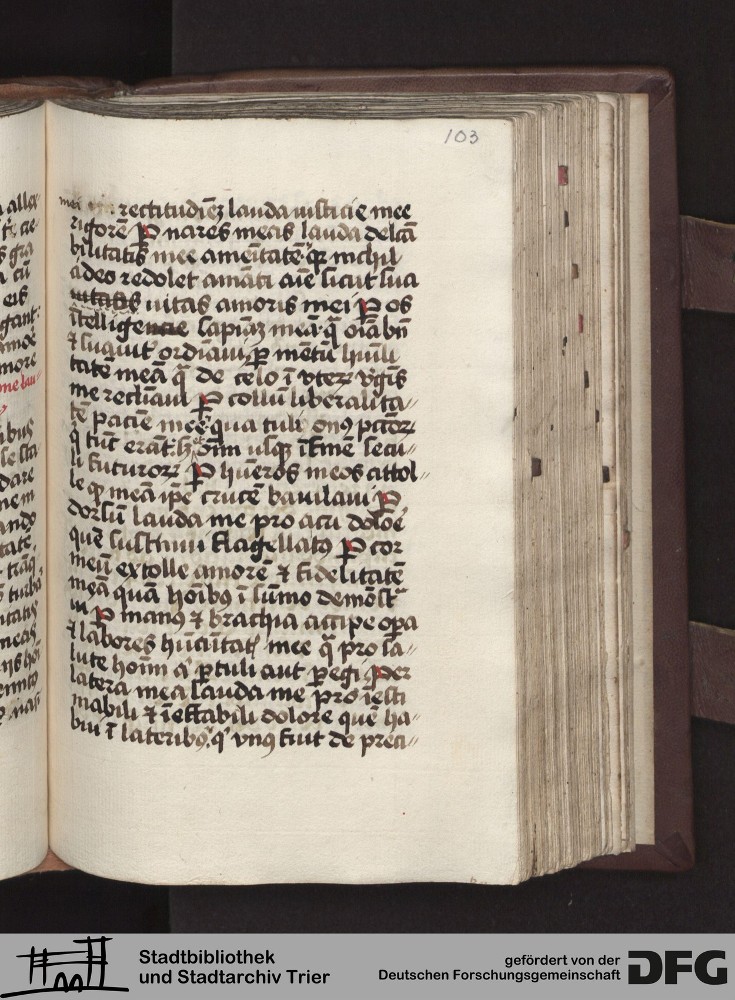 103
mei rectitudinē lauda iusticie mee
rigorē P nares meas lauda delcā
bilitatis mee amenitatē q nichil
adeo redolet amāti aīe sicut sua
uitas amoris mei P os
ītelligencie sapiāz meā q̄ oīa bn̄
⁊ suauit ordīaui P mentū hūili
tatē meā q̄ de celo ī vterꝫ v̓gīs
me reclīaui P collū liberalita-
tē paciē mee qua tuli on9 pctōrꝫ
q̄ tūt erāt hoīm usqꝫ ī finē secu-
li futurorꝫ P hūeros meos attol-
le qꝫ meā ipē crucē baiulaui P
dorsū lauda me pro acu dolōe
quē sustinui flagellat9 P cor
meū extolle amorē ⁊ fidelitatē
meā quā hoībꝫ ī sūmo demōstᵃ
ui P man9 ⁊ brachia accipe opa
⁊ labores hūaitatꝭ mee q̄ pro sa-
lute hoīm ꝑtuli aut ꝑegi Per
latera mea lauda me pro iesti
mabili ⁊ ieffabili dolore quē ha-
bui ī lateribꝫ q̓ vn9 fuit de preci-
Stadtbibliothek
und Stadtarchiv Trier
gefördert von der
Deutschen Forschungsgemeinschaft
DFG